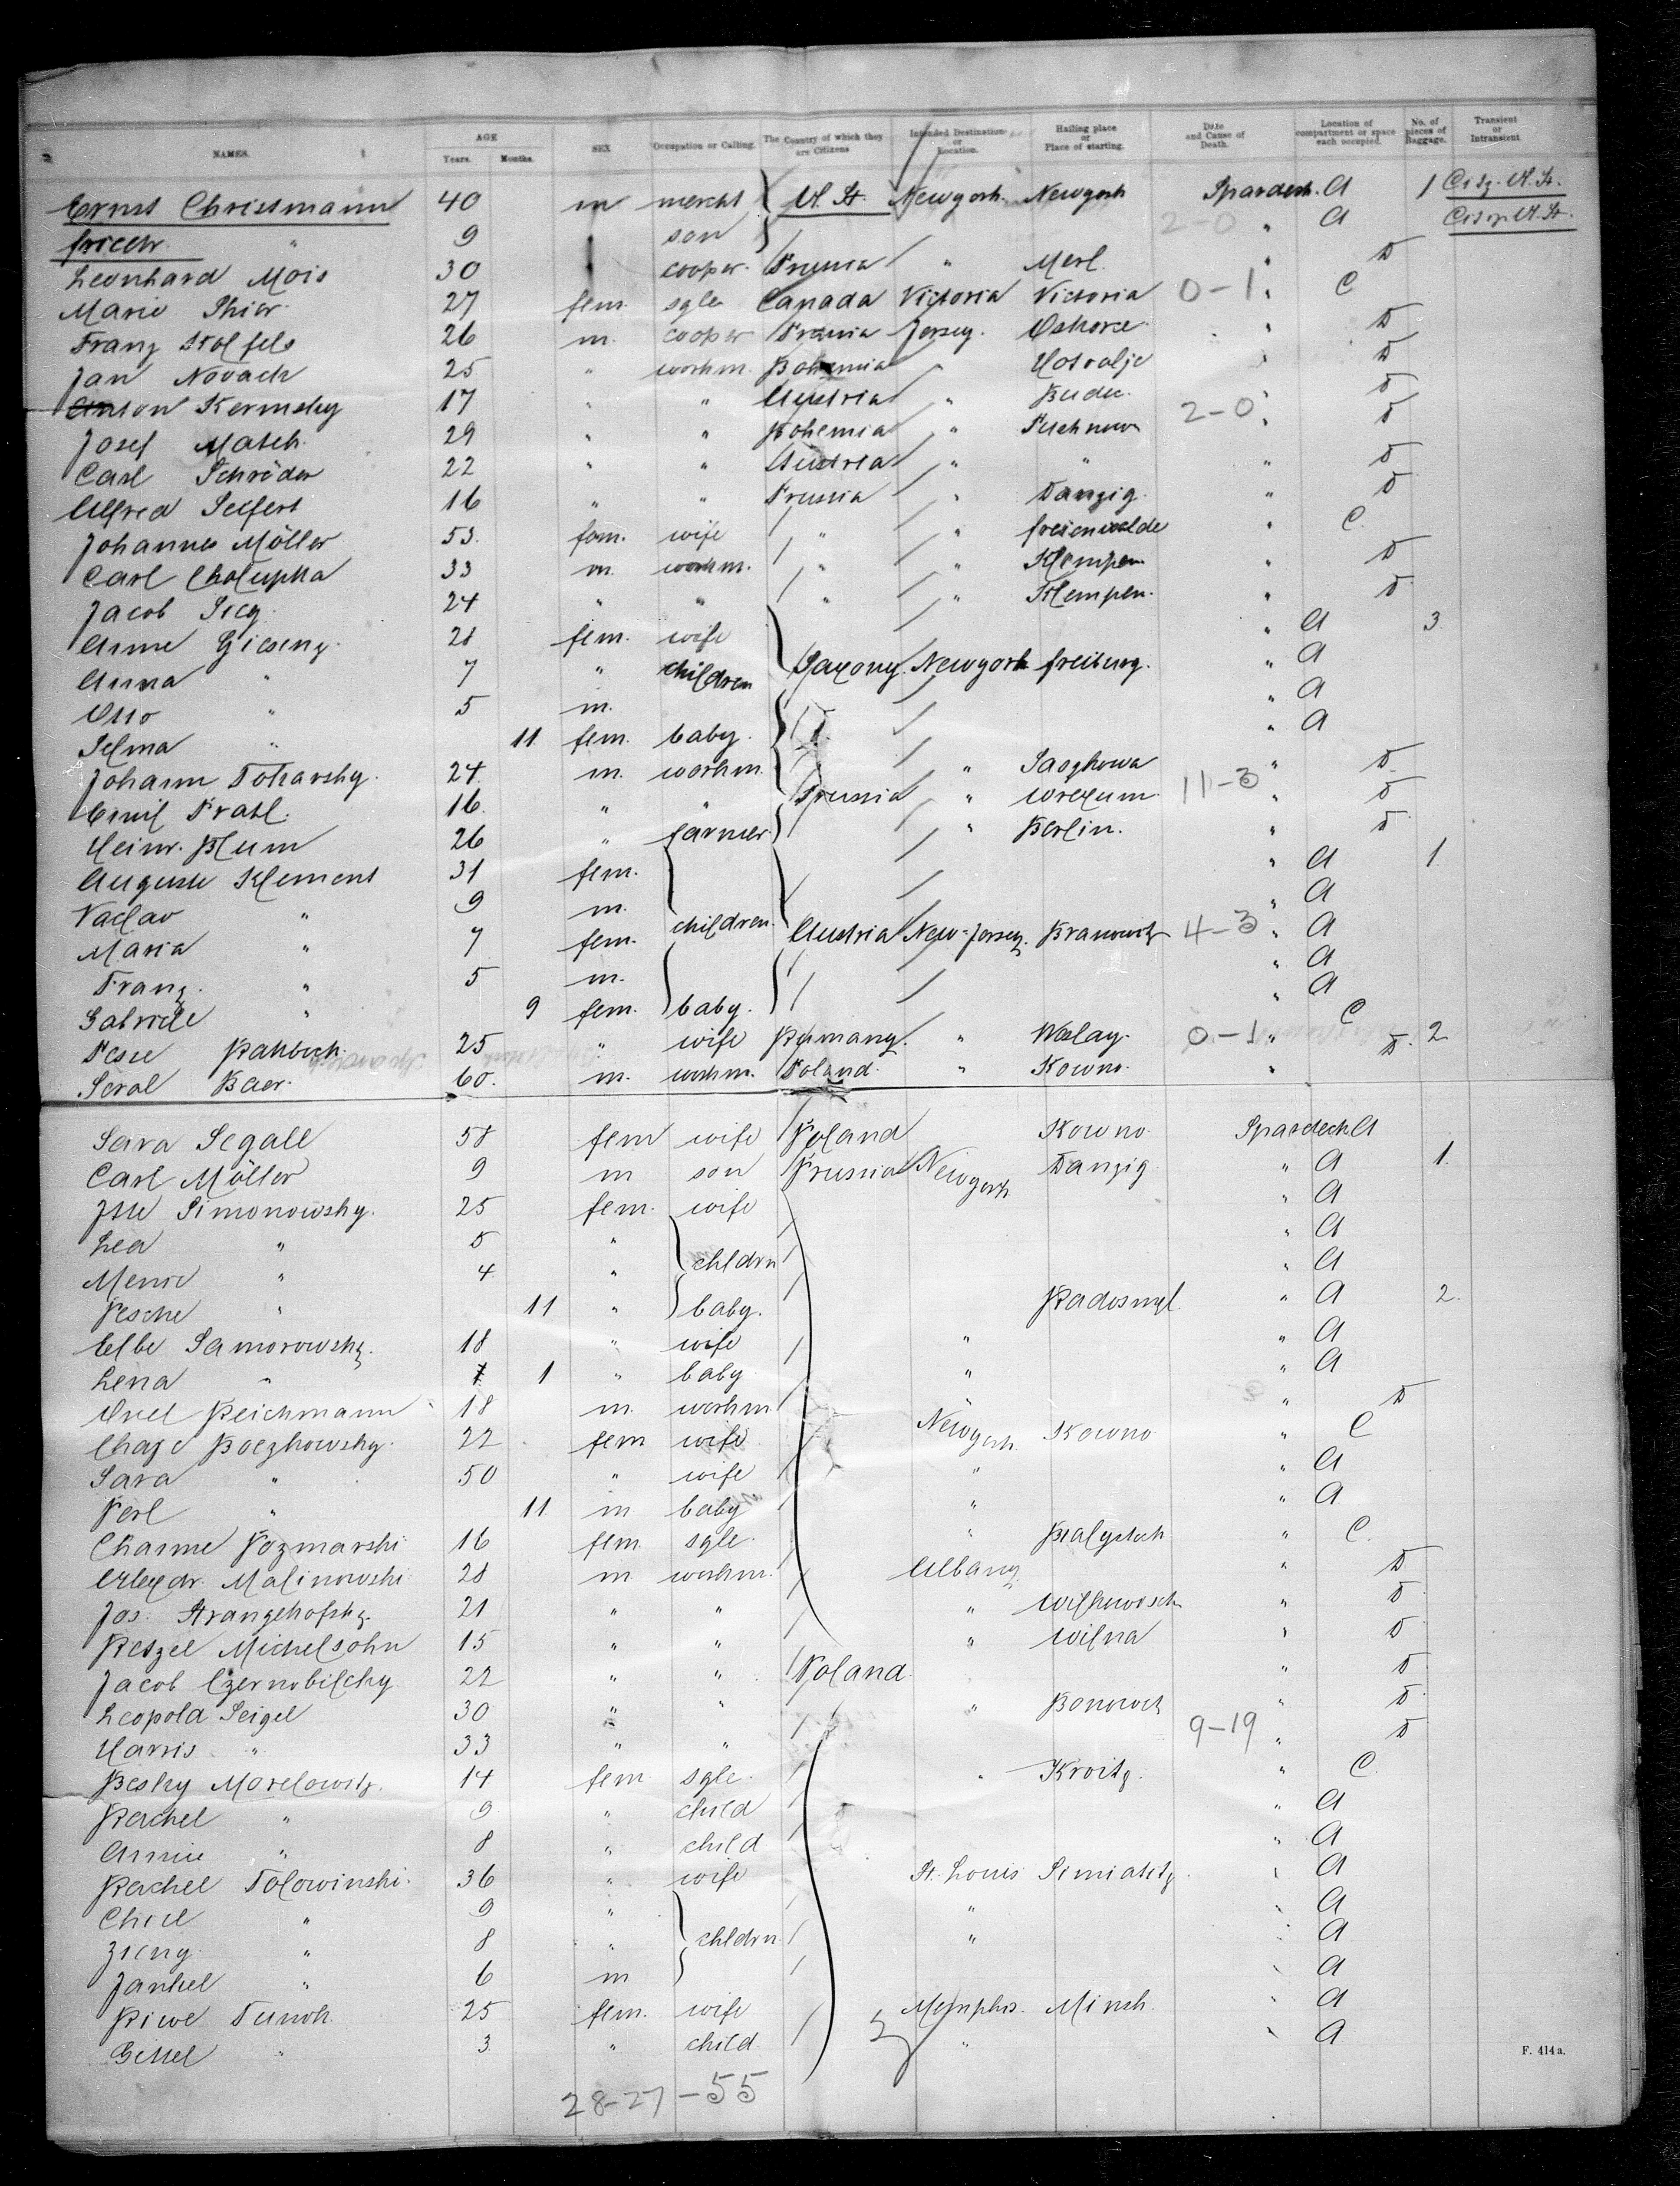 NAMES. AGE Years. Months. SEX Occupation or Calling. The Country of which they are Citizens Intended Destination or Location. Hailing place or Place of starting. Date and Cause of Death. Location of compartment or space each occupied. No. of pieces of Baggage. Transient or Intransient.
Ernst Christmann 40 m mercht U. St. Newyork Newyork Spardeck A 1 Citz. U. St.
friedr. " 9 son 2-0 " A Citz. U. St.
Leonhard Mois 30 cooper Prussia " Merl " D
Marie Thier 27 fem. sgle Canada Victoria Victoria 0-1 " C
Franz Stolfels 26 m. cooper Prussia Jersey. " D
Jan Novack 25 " workm. Bohemia " " D
Anton Kermsky 17 " " Austria " Budw. " D
Josef Matek 29 " " Bohemia " 2-0 " D
Carl Schröder 22 " " Austria " " " D
Alfred Seifert 16 " " Prussia " Danzig. " D
Johannes Möller 53. fem. wife " " freienwalde " C.
Carl Chalupka 33 m. workm. " " Klempen " D
Jacob Sieg 24 " " " " Klempen. " D
Anne Gieseng. 28 fem. wife " A 3
Anna " 7 " children Saxony. Newyork freiburg. " A
Otto " 5 m. " A
Selma " 11 fem. baby. " A
Johann Tokarsky. 24. m. workm. " " D.
Emil Prahl. 16. " " Prussia " 11-3 " D
Heinr. Blum 26 " farmer. " Berlin. " D
Auguste Klement 31 fem. " A 1.
Vaclav " 9 m. " A
Maria " 7 fem. children. Austria New-Jersey. Branowitz 4-3 " A
Franz. " 5 m. " A
Gabriele " 9 fem. baby. " A
25 " wife " 0-1 " C 2
Baer. 60. m. workm. Poland. " Kowno. " D.
Sara Segall 58 fem wife Poland Kowno Spardeck A
Carl Möller 9 m son Prussia Newyork Danzig " A 1.
Simonowsky. 25 fem. wife " A
Lea " 5 " chldrn " A
" 4 " " A
Pesche " 11 " baby. Radosmyl " A 2.
Elbe Samorowsky. 18 " wife " " A
Lena " 1 " baby " " A
Reichmann 18 m. workm " D
Chaje Boezkowsky. 22 fem wife Newyork Kowno " C
Sara " 50 " wife " " A
Perl " 11 m baby " " A
Charme Pozmarski 16 fem sgle " Bialystock " C.
Alexdr. Malinowski 28 m workm. Albany " D
Jos. 21 " " " " D
Michelsohn 15 " " " Wilna " D
Jacob Czernobilsky 22 " " Poland. " D
Leopold Seigel 30 " " " " D
Harris " 33 " " 9-19 " D
Besky Morelowitz. 14 fem sgle " Kroitz. " C.
Rachel " 9 " child " A
Annie " 8 " child " A
Rachel Tolowinski. 36 " wife St. Louis Simiatitz " A
" 9 " " " A
" 8 " chldrn " " A
Jankel " 6 m " A
Riwe 25 fem. wife Memphis. Minsk. " A
Gittel " 3 " child " " A
28-27-55
F. 414 a.